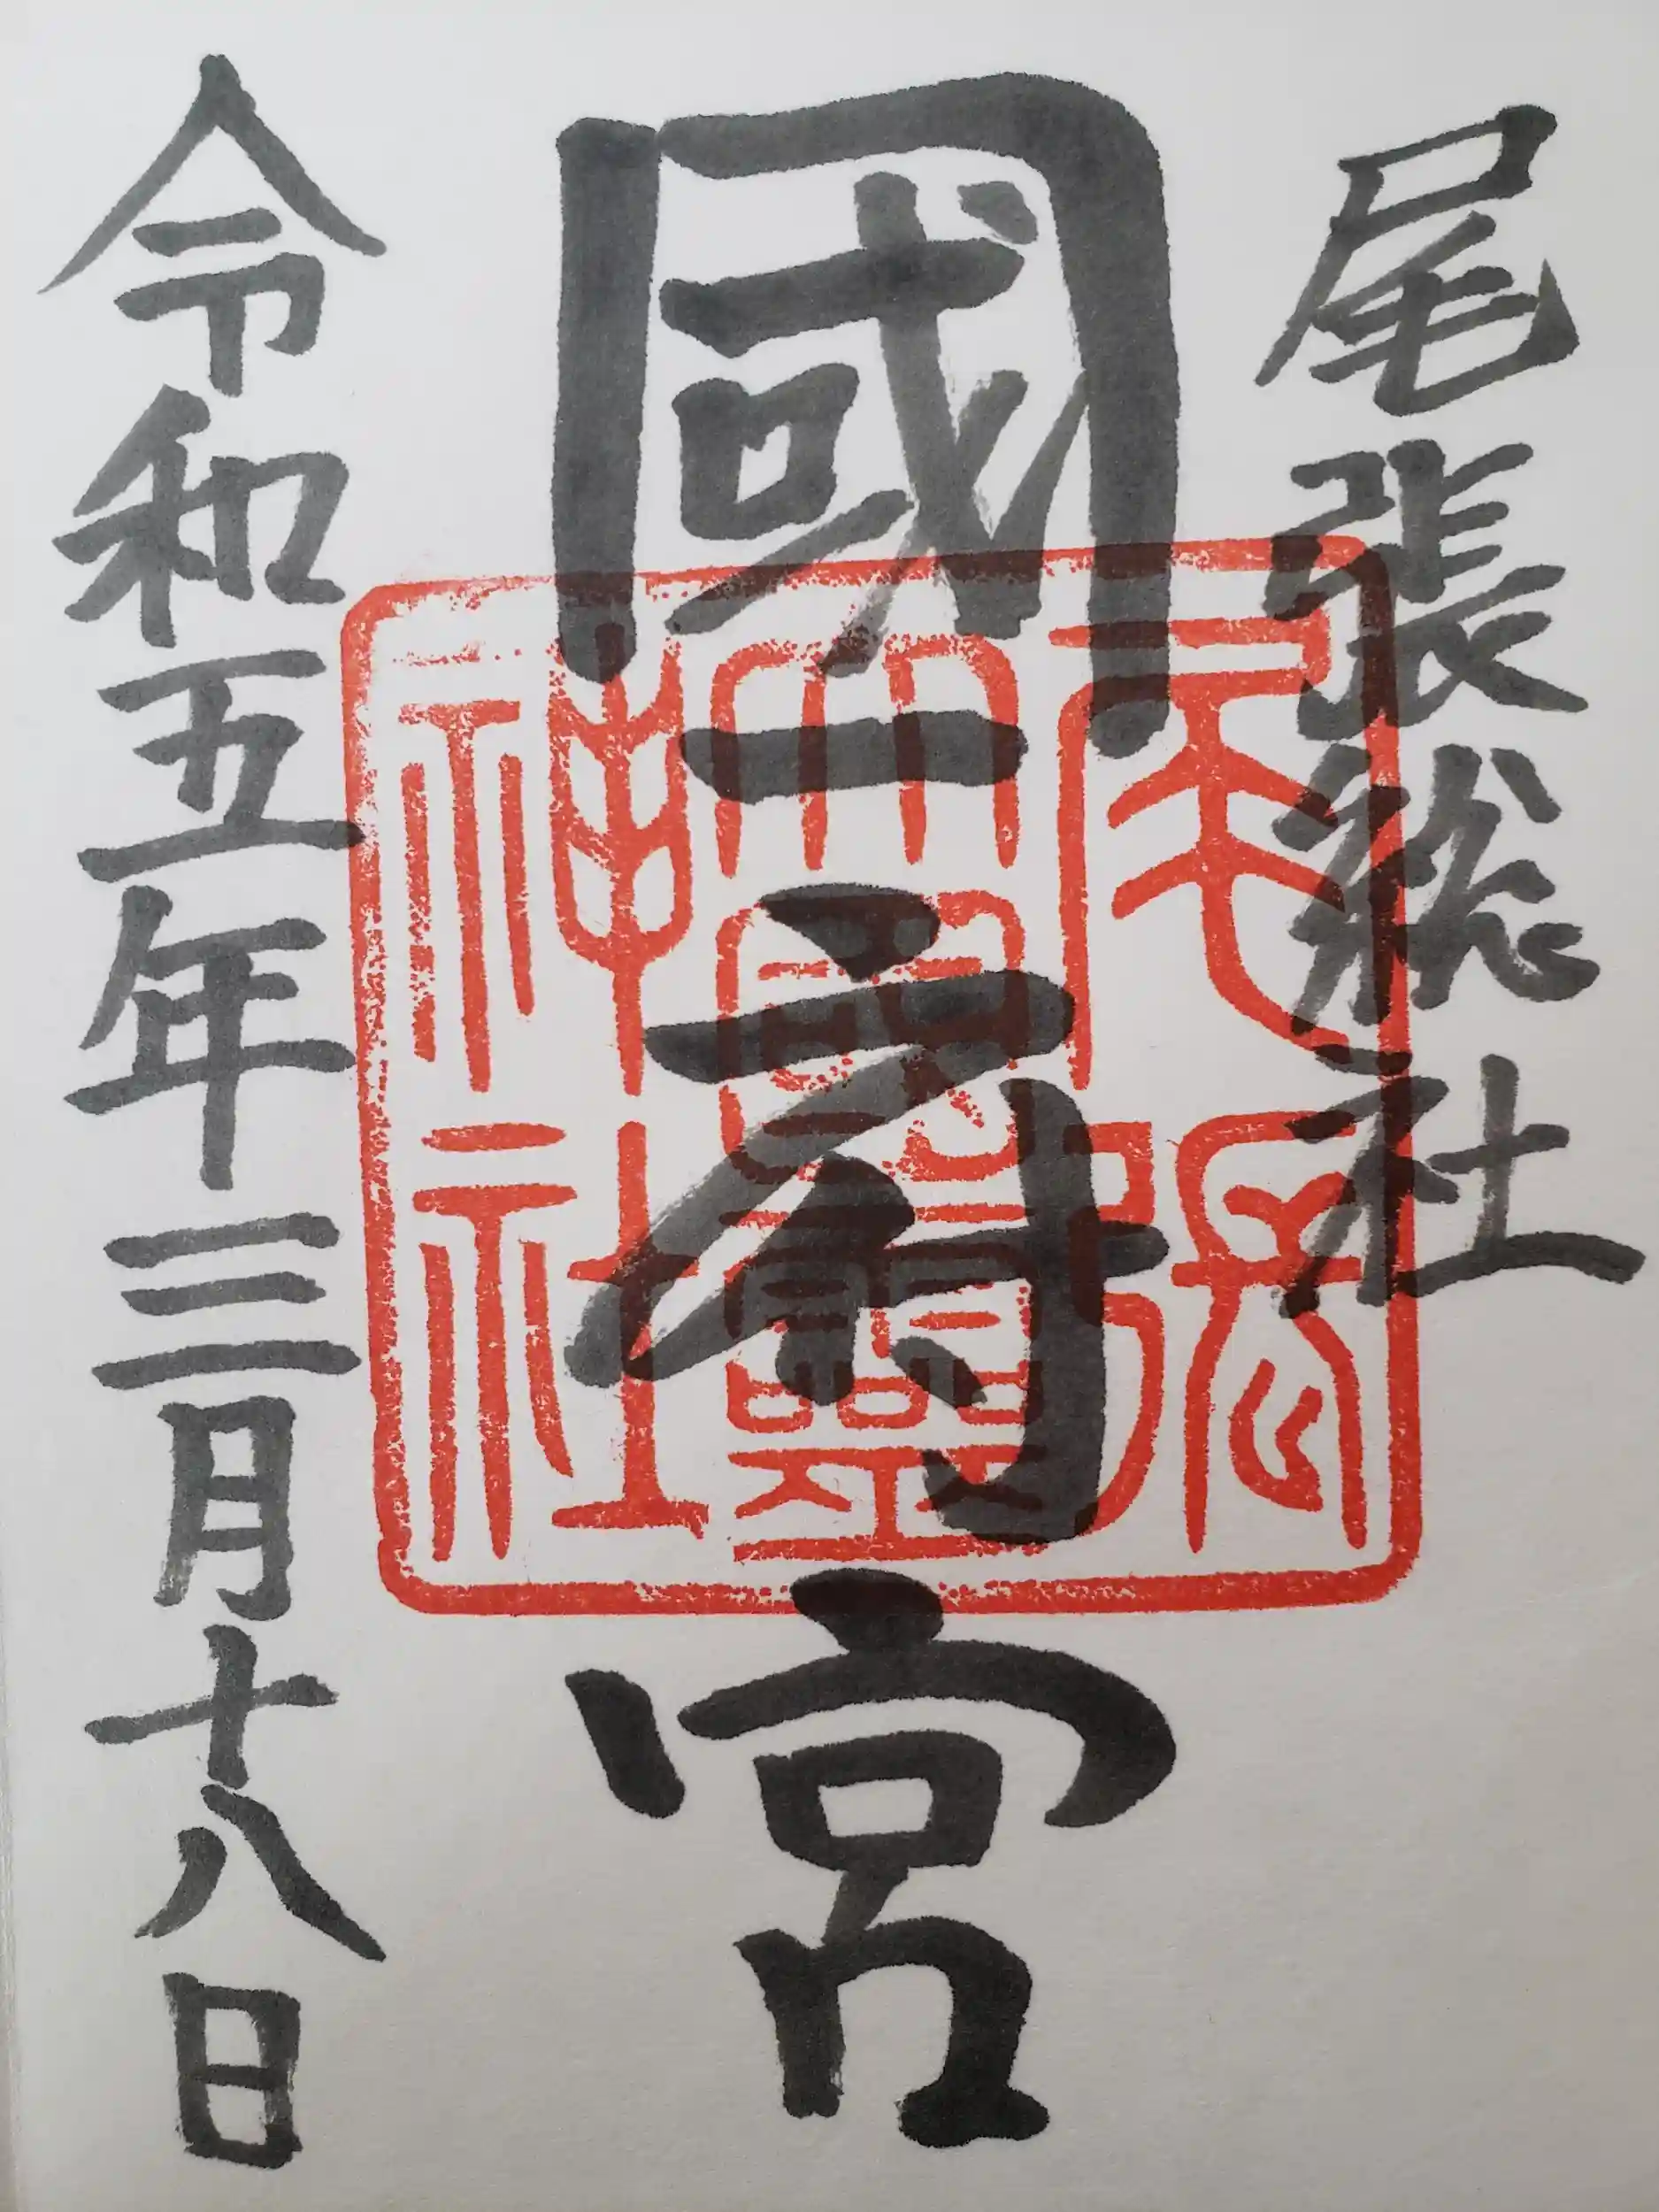 尾張総社
國府宮
尾張
大國霊
神社
令和五年三月十八日